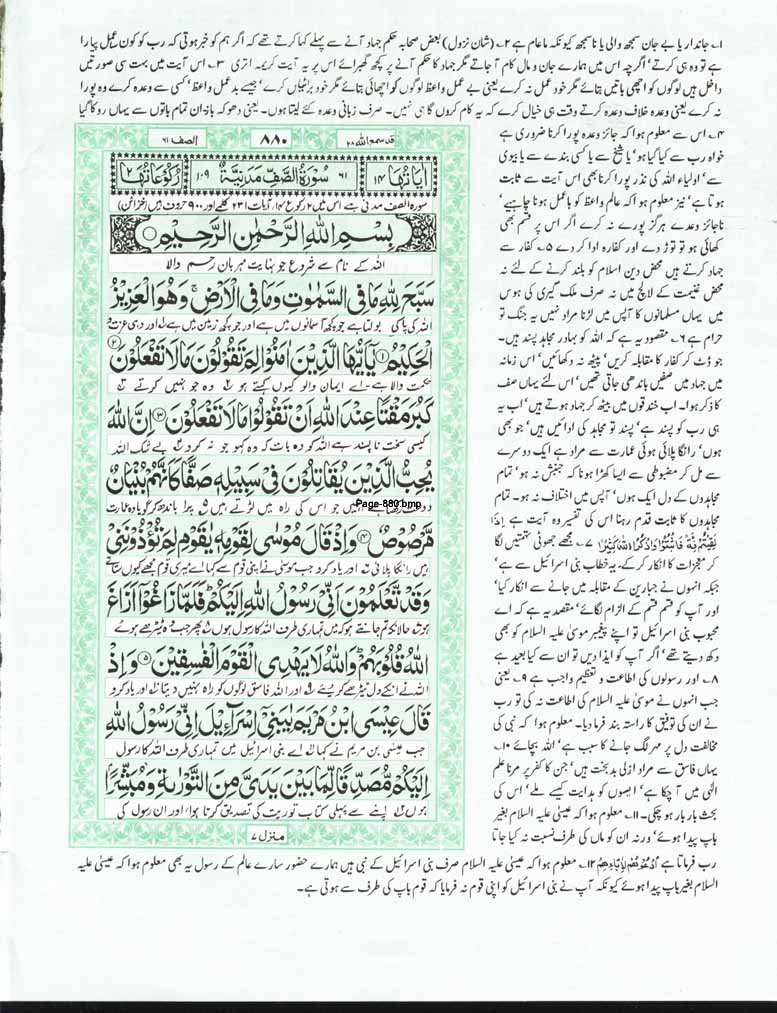 ۱؎ جاندار یا بے جان سمجھ والی یا ناسمجھ کیونکہ ما عام ہے ۲؎ (شان نزول) بعض صحابہ حکم جہاد آنے سے پہلے کہا کرتے تھے کہ اگر ہم کو خبر ہوتی کہ رب کو کون عمل پیارا
ہے تو وہ ہی کرتے' اگرچہ اس میں ہمارے جان و مال کام آ جاتے مگر جہاد کا حکم آنے پر کچھ گھبرائے اس پر یہ آیت کریمہ اتری ۳؎ اس آیت میں بہت سی صورتیں
داخل ہیں لوگوں کو اچھی باتیں بتائے مگر خود عمل نہ کرے یعنی بے عمل واعظ لوگوں کو اچھائی بتائے مگر خود برائیاں کرے' جیسے بد عمل واعظ' کسی سے وعدہ کرے وہ پورا
نہ کرے یعنی وعدہ خلاف وعدہ کرتے وقت ہی خیال کرے کہ یہ کام کروں گا ہی نہیں۔ صرف زبانی وعدہ کئے لیتا ہوں۔ یعنی دھوکہ باز۔ ان تمام باتوں سے یہاں روکا گیا
۴؎ اس سے معلوم ہوا کہ جائز وعدہ پورا کرنا ضروری ہے
خواہ رب سے کیا گیا ہو' یا شیخ سے یا کسی بندے سے یا بیوی
سے' اولیاء اللہ کی نذر پورا کرنا بھی اس آیت سے ثابت
ہوتا ہے' نیز معلوم ہوا کہ عالم واعظ کو باعمل ہونا چاہیے'
ناجائز وعدے ہرگز پورے نہ کرے اگر اس پر قسم بھی
کھائی ہو تو توڑ دے اور کفارہ ادا کر دے ۵؎ کفار سے
جہاد کرتے ہیں محض دین اسلام کو بلند کرنے کے لئے نہ
محض غنیمت کے لالچ میں نہ صرف ملک گیری کی ہوس
میں یہاں مسلمانوں کا آپس میں لڑنا مراد نہیں یہ جنگ تو
حرام ہے ۶؎ مقصود یہ ہے کہ اللہ کو بہادر مجاہد پسند ہیں۔
جو ڈٹ کر کفار کا مقابلہ کریں' پیٹھ نہ دکھائیں' اس زمانہ
میں جہاد میں صفیں باندھی جاتی تھیں' اس لئے یہاں صف
کا ذکر ہوا۔ اب خندقوں میں بیٹھ کر جہاد ہوتے ہیں' اب یہ
ہی رب کو پسند ہے' پسند تو مجاہد کی ادائیں ہیں' جو بھی
ہوں' رانگا پلائی ہوئی عمارت سے مراد ہے ایک دوسرے
سے مل کر مضبوطی سے ایسا کھڑا ہونا کہ جنبش نہ ہو' تمام
مجاہدوں کے دل ایک ہوں' آپس میں اختلاف نہ ہو۔ تمام
مجاہدوں کا ثابت قدم رہنا اس کی تفسیر وہ آیت ہے اِذَا
لَقِيْتُمْ فِئَةً فَاثْبُتُوْا وَاذْكُرُوا اللّٰهَ كَثِيْرًا ۷؎ مجھے جھوٹی تہمتیں لگا
کر معجزات کا انکار کر کے۔ یہ خطاب بنی اسرائیل سے ہے'
جبکہ انہوں نے جبارین کے مقابلہ میں جانے سے انکار کیا'
اور آپ کو قسم قسم کے الزام لگائے' مقصد یہ ہے کہ اے
محبوب بنی اسرائیل تو اپنے پیغمبر موسیٰ علیہ السلام کو بھی
دکھ دیتے تھے' اگر آپ کو ایذا دیں تو ان سے کیا بعید ہے
۸؎ اور رسولوں کی اطاعت و تعظیم واجب ہے ۹؎ یعنی
جب انہوں نے موسیٰ علیہ السلام کی اطاعت نہ کی تو رب
نے ان کی توفیق کا راستہ بند فرما دیا۔ معلوم ہوا کہ نبی کی
مخالفت دل پر مہر لگ جانے کا سبب ہے' اللہ بچائے ۱۰؎
یہاں فاسق سے مراد ازلی بدبخت ہیں' جن کا کفر پر مرنا علم
الٰہی میں آ چکا ہے' ایسوں کو ہدایت کیسے ملے' اس کی
بحث بار بار ہو چکی۔ ۱۱؎ معلوم ہوا کہ عیسیٰ علیہ السلام بغیر
باپ پیدا ہوئے' ورنہ ان کو ماں کی طرف نسبت نہ کیا جاتا
قد سمع الله ۲۸
۸۸۰
الصف ۶۱
اٰيَاتُهَا ۱۴
۶۱ سُوْرَةُ الصَّفِّ مَدَنِيَّةٌ ۱۰۹
رُكُوْعَاتُهَا ۲
سورہ الصف مدنی ہے اس میں ۲ رکوع ۱۴ آیات ۲۳۱ کلمے اور ۹۰۰ حروف ہیں (خزائن)
بِسْمِ اللّٰهِ الرَّحْمٰنِ الرَّحِيْمِ
اللہ کے نام سے شروع جو نہایت مہربان رحم والا
سَبَّحَ لِلّٰهِ مَا فِى السَّمٰوٰتِ وَمَا فِى الْاَرْضِ ۚ وَهُوَ الْعَزِيْزُ
اللہ کی پاکی بولتا ہے جو کچھ آسمانوں میں ہے اور جو کچھ زمین میں ہے ۱؎ اور وہی عزت و
الْحَكِيْمُ ① يٰۤاَيُّهَا الَّذِيْنَ اٰمَنُوْا لِمَ تَقُوْلُوْنَ مَا لَا تَفْعَلُوْنَ ②
حکمت والا ہے اے ایمان والو کیوں کہتے ہو ۲؎ وہ جو نہیں کرتے ۳؎
كَبُرَ مَقْتًا عِنْدَ اللّٰهِ اَنْ تَقُوْلُوْا مَا لَا تَفْعَلُوْنَ ③ اِنَّ اللّٰهَ
کیسی سخت ناپسند ہے اللہ کو وہ بات کہ وہ کہو جو نہ کرو ۴؎ بے شک اللہ
يُحِبُّ الَّذِيْنَ يُقَاتِلُوْنَ فِىْ سَبِيْلِهٖ صَفًّا كَاَنَّهُمْ بُنْيَانٌ
Page-880.bmp
دوست رکھتا ہے انہیں جو اس کی راہ میں لڑتے ہیں ۵؎ پرا باندھ کر گویا وہ عمارت
مَّرْصُوْصٌ ④ وَاِذْ قَالَ مُوْسٰى لِقَوْمِهٖ يٰقَوْمِ لِمَ تُؤْذُوْنَنِىْ
ہیں رانگا پلائی ۶؎ اور یاد کرو جب موسیٰ نے اپنی قوم سے کہا اے میری قوم مجھے کیوں ستاتے
وَقَدْ تَّعْلَمُوْنَ اَنِّىْ رَسُوْلُ اللّٰهِ اِلَيْكُمْ ؕ فَلَمَّا زَاغُوْۤا اَزَاغَ
ہو ۷؎ حالانکہ تم جانتے ہو کہ میں تمہاری طرف اللہ کا رسول ہوں ۸؎ پھر جب وہ ٹیڑھے ہوئے
اللّٰهُ قُلُوْبَهُمْ ؕ وَاللّٰهُ لَا يَهْدِى الْقَوْمَ الْفٰسِقِيْنَ ⑤ وَاِذْ
اللہ نے انکے دل ٹیڑھے کر دیئے ۹؎ اور اللہ فاسق لوگوں کو راہ نہیں دیتا ۱۰؎ اور یاد کرو
قَالَ عِيْسَى ابْنُ مَرْيَمَ يٰبَنِىْۤ اِسْرَآءِيْلَ اِنِّىْ رَسُوْلُ اللّٰهِ
جب عیسیٰ بن مریم نے کہا ۱۱؎ اے بنی اسرائیل میں تمہاری طرف اللہ کا رسول
اِلَيْكُمْ مُّصَدِّقًا لِّمَا بَيْنَ يَدَىَّ مِنَ التَّوْرٰىةِ وَمُبَشِّرًا
ہوں ۱۲؎ اپنے سے پہلی کتاب توریت کی تصدیق کرتا ہوا اور ان رسول کی
منزل ۷
رب فرماتا ہے اُدْعُوْهُمْ لِاٰبَآئِهِمْ ۱۲؎ معلوم ہوا کہ عیسیٰ علیہ السلام صرف بنی اسرائیل کے نبی ہیں ہمارے حضور سارے عالم کے رسول یہ بھی معلوم ہوا کہ عیسیٰ علیہ
السلام بغیر باپ پیدا ہوئے کیونکہ آپ نے بنی اسرائیل کو اپنی قوم نہ فرمایا کہ قوم باپ کی طرف سے ہوتی ہے۔